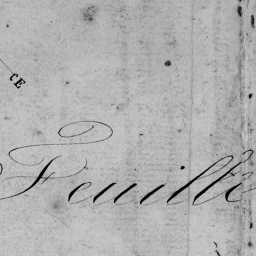 CE
Feuille